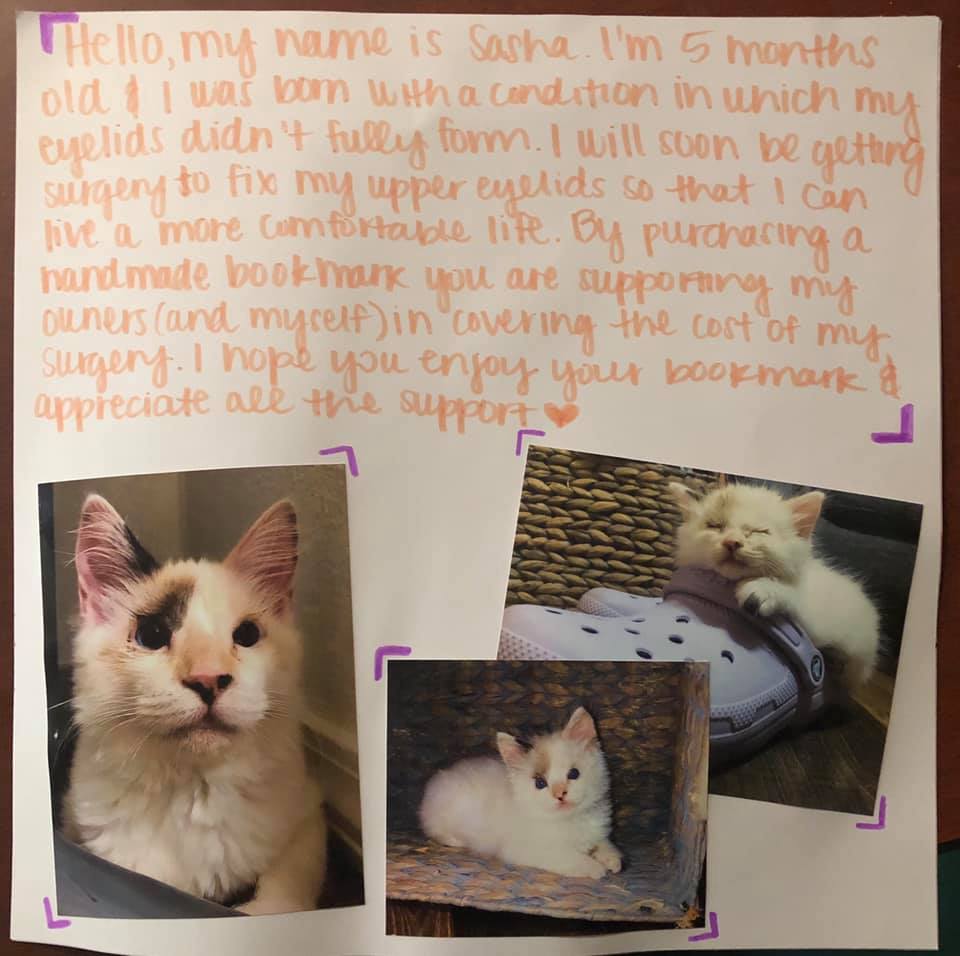 Hello, my name is Sasha. I'm 5 months
old & I was born with a condition in which my
eyelids didn't fully form. I will soon be getting
surgery to fix my upper eyelids so that I can
live a more comfortable life. By purchasing a
handmade bookmark you are supporting my
owners (and myself) in covering the cost of my
surgery. I hope you enjoy your bookmark &
appreciate all the support ♥